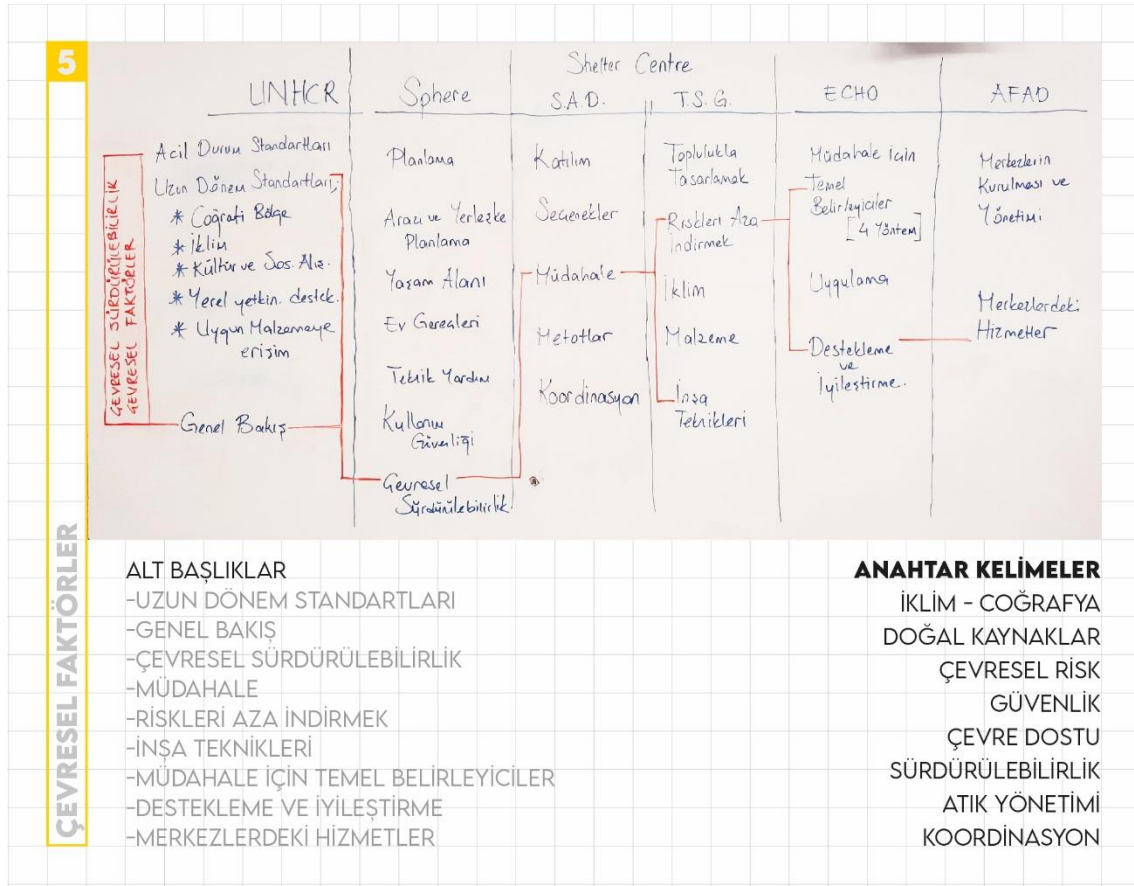 5
ÇEVRESEL FAKTÖRLER
ÇEVRESEL SÜRDÜRÜLEBİLİRLİK
ÇEVRESEL FAKTÖRLER
UNHCR
Acil Durum Standartları
Uzun Dönem Standartları;
* Coğrafi Bölge
* İklim
* Kültür ve Sos. Alış.
* Yerel yetkin. destek.
* Uygun Malzemeye
erişim
Genel Bakış
Sphere
Planlama
Arazi ve Yerleşke
Planlama
Yaşam Alanı
Ev Gereçleri
Teknik Yardım
Kullanım
Güvenliği
Çevresel
Sürdürülebilirlik
Shelter Centre
S.A.D.
Katılım
Seçenekler
Müdahale
Metotlar
Koordinasyon
T.S.G.
Toplulukla
Tasarlamak
Riskleri Aza
indirmek
İklim
Malzeme
İnşa
Teknikleri
ECHO
Müdahale için
Temel
Belirleyiciler
[4 Yöntem]
Uygulama
Destekleme
ve
İyileştirme.
AFAD
Merkezlerin
Kurulması ve
Yönetimi
Merkezlerdeki
Hizmetler
ALT BAŞLIKLAR
-UZUN DÖNEM STANDARTLARI
-GENEL BAKIŞ
-ÇEVRESEL SÜRDÜRÜLEBİLİRLİK
-MÜDAHALE
-RİSKLERİ AZA İNDİRMEK
-İNŞA TEKNİKLERİ
-MÜDAHALE İÇİN TEMEL BELİRLEYİCİLER
-DESTEKLEME VE İYİLEŞTİRME
-MERKEZLERDEKİ HİZMETLER
ANAHTAR KELİMELER
İKLİM - COĞRAFYA
DOĞAL KAYNAKLAR
ÇEVRESEL RİSK
GÜVENLİK
ÇEVRE DOSTU
SÜRDÜRÜLEBİLİRLİK
ATIK YÖNETİMİ
KOORDİNASYON